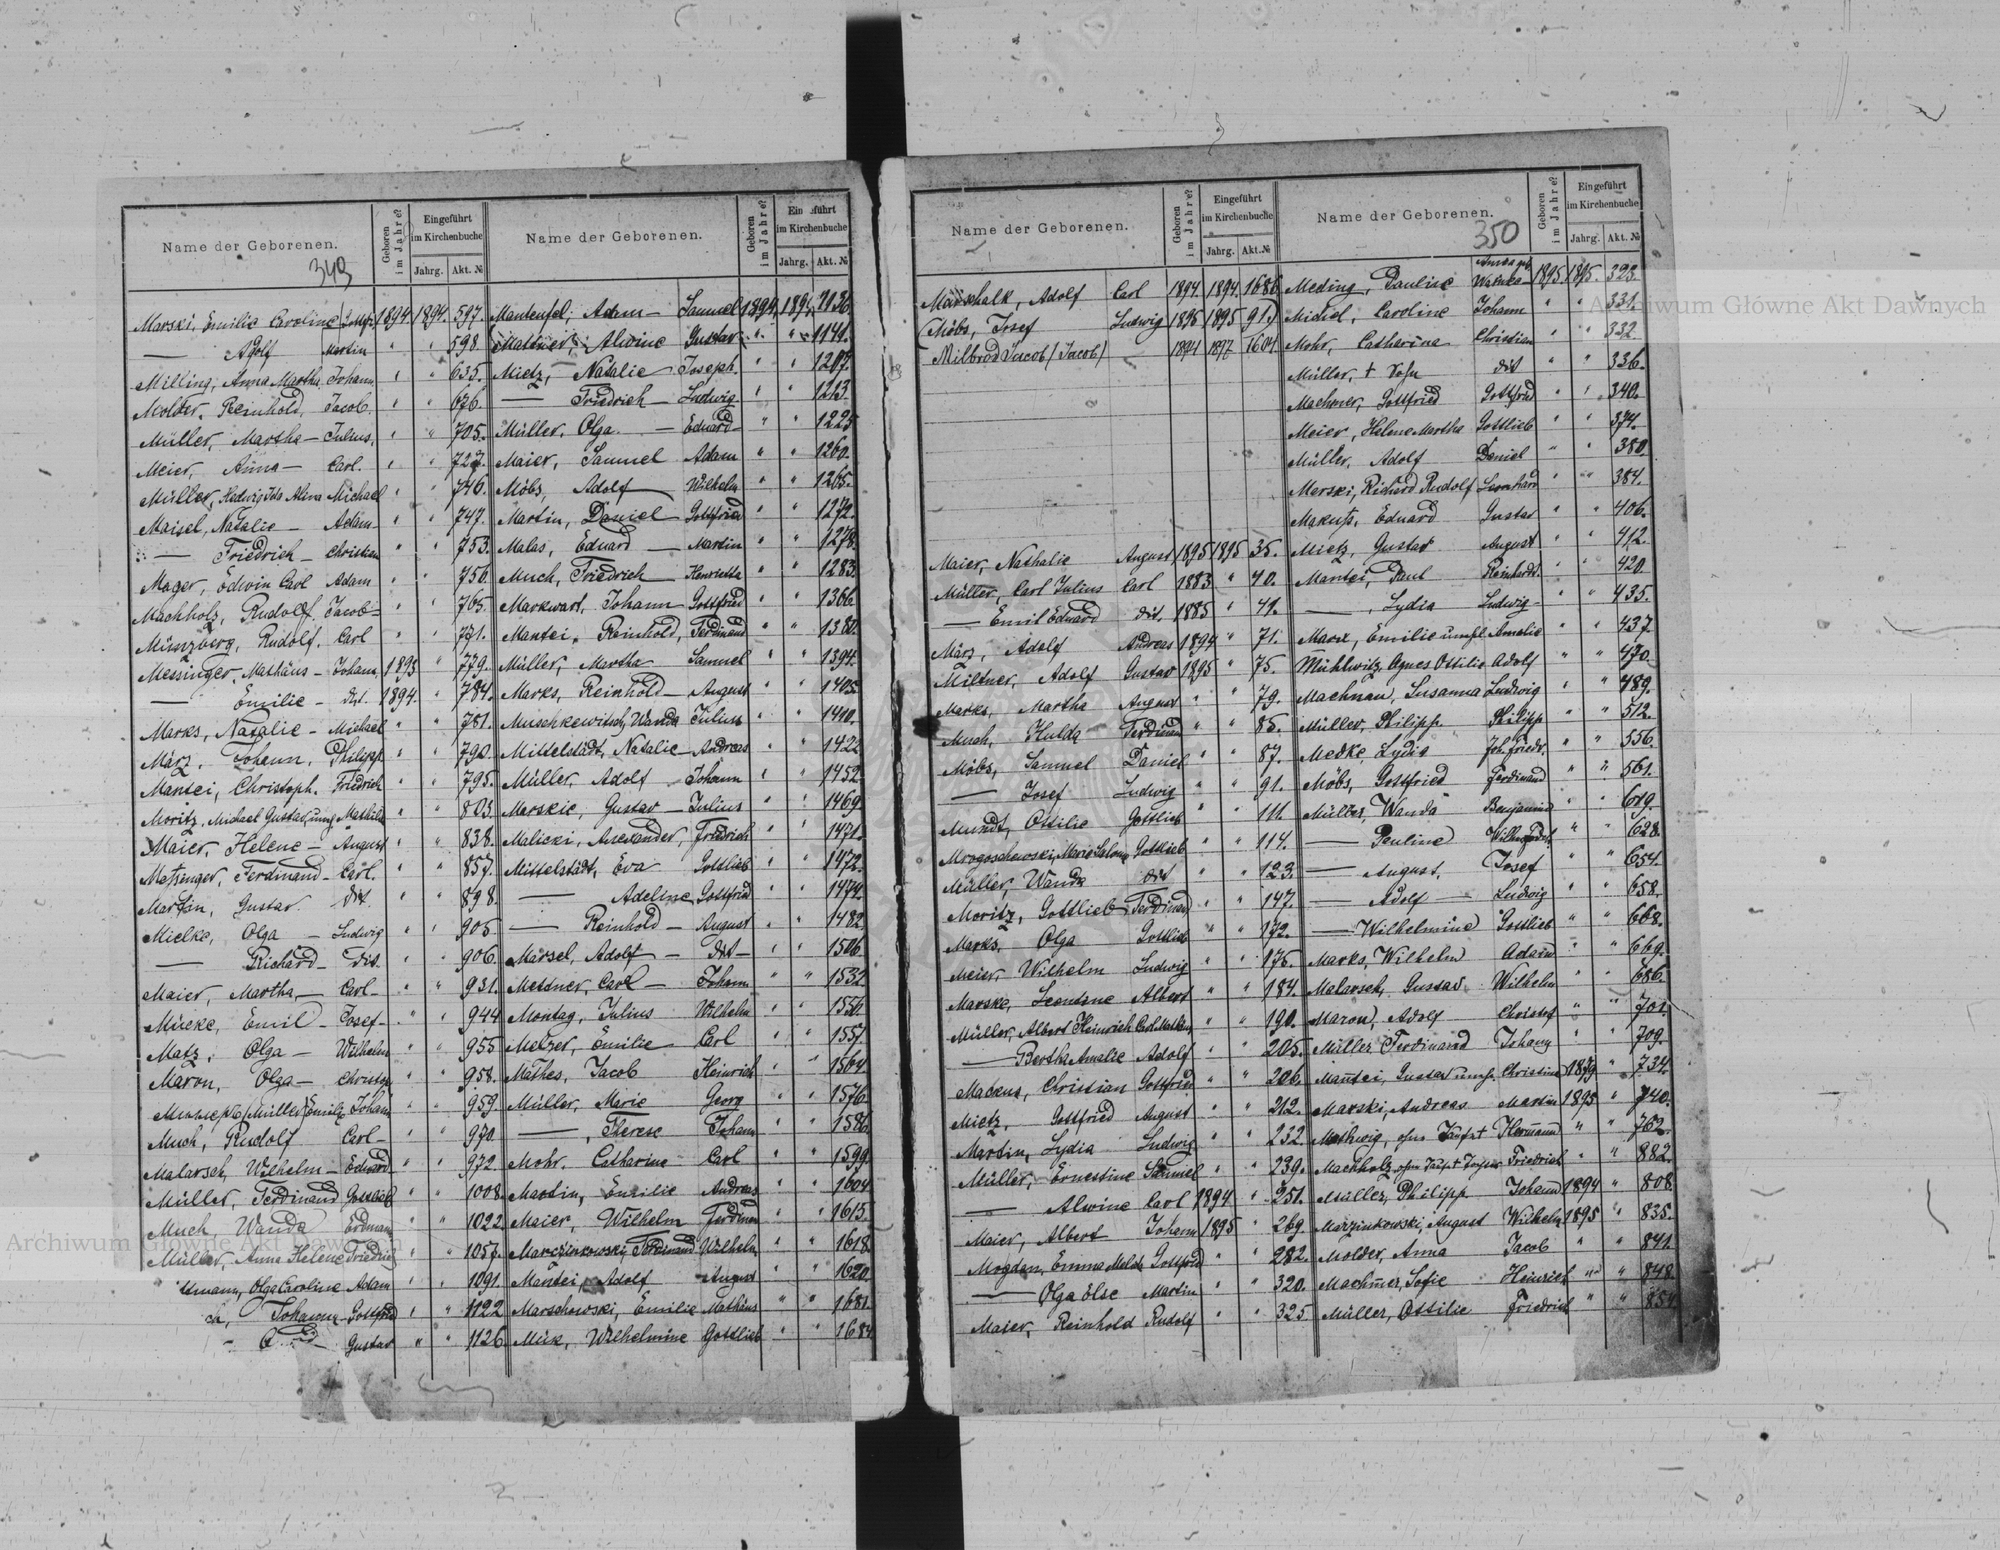 Name der Geborenen.
Geboren im Jahre?
Eingeführt im Kirchenbuche
Jahrg.
Akt. №
349
Marski, Emilie Caroline 1894. 1894. 597.
— Adolf Martin " " 598.
Milling, Anna Martha, Johann " " 635.
Molder, Reinhold, Jacob. " " 676.
Müller, Martha — Julius. " " 705.
Meier, Anna — Carl. " " 727.
Müller, Hedwig Ida Alma Michael " " 746.
Maisel, Natalie — Adam " " 747.
— Friedrich — Christian " " 753.
Mager, Edwin Carl Adam " " 756.
Machholz, Rudolf. Jacob " " 765.
Münzberg, Rudolf. Carl " " 771.
Messinger, Mathäus — Johann, 1893 " 779.
— Emilie — dit. 1894. " 784.
Marks, Natalie — Michael " " 781.
März, Johann, Philipp " " 790.
Mantei, Christoph. Friedrich " " 795.
Moritz, Michael Gustav, unehl. Mathilde " " 803.
Maier, Helene — August " " 838.
Messenger, Ferdinand — Carl. " " 857.
Martin, Gustav dit. " " 898.
Mielke, Olga — Ludwig " " 905
— Richard — dit. " " 906.
Maier, Martha, — Carl — " " 931.
Mücke, Emil — Josef — " " 944
Matz, Olga — Wilhelm " " 955
Maron, Olga — Christof " " 958.
(Müller) Emilie Johann " " 959.
Much, Rudolf Carl — " " 970
Malarsch, Wilhelm — Eduard " " 972
Müller, Ferdinand Gottlieb " " 1008
Much Wanda Erdmann " " 1022
Müller, Anna Helene Friedrich " " 1057.
Olga Caroline Adam " " 1091.
Johann Gottfried " " 1122
Gustav " " 1126.
Name der Geborenen.
Geboren im Jahre?
Eingeführt im Kirchenbuche
Jahrg.
Akt. №
Manteufel, Adam — Samuel 1894, 1894,
(Mattner, Alwine Gustav " " 1141.
Mietz, Natalie Joseph. " " 1207.
— Friedrich — Ludwig " " 1213.
Müller, Olga — Eduard " " 1225
Maier, Samuel Adam " " 1260.
Möbs, Adolf Wilhelm " " 1265.
Martin, Daniel Gottfried " " 1272.
Malas, Eduard — Martin " " 1278.
Much, Friedrich Henriette " " 1283.
Markwart, Johann Gottfried " " 1366.
Mantei, Reinhold, Ferdinand " " 1380.
Müller, Martha Samuel " " 1394.
Marks, Reinhold — August " " 1405.
Muschkewitsch, Wanda Julius " " 1410.
Mittelstädt, Natalie — Andreas " " 1422
Müller, Adolf Johann " " 1452
Marskie, Gustav — Julius " " 1469
Malicki, Alexander, Friedrich " " 1471.
Mittelstädt, Eva Gottlieb " " 1472.
— Adeline Gottfried " " 1474.
— Reinhold — August " " 1482.
Märsel, Adolf — dit — " " 1506.
Metner, Carl — Johann " " 1532
Montag, Julius Wilhelm " " 1550.
Melzer, Emilie Carl " " 1557.
Mathes, Jacob Heinrich " " 1564
Müller, Marie Georg " " 1576.
—, Therese Johann " " 1586.
Mohr, Catharine Carl " " 1599
Martin, Emilie Andreas " " 1604
Maier, Wilhelm Ferdinand " " 1615.
Marczinkowski, Ferdinand Wilhelm " " 1618.
Mantei, Adolf August " " 1620
Marschewski, Emilie Mathäus " " 1681.
Mück, Wilhelmine Gottlieb " " 1684
Name der Geborenen.
Geboren im Jahre?
Eingeführt im Kirchenbuche
Jahrg.
Akt. №
Marschalk, Adolf Carl 1894. 1894. 1686
(Möbs, Josef Ludwig 1895 1895 91.)
(Milbrod Jacob/Jacob/ — 1894 1897 1604
Maier, Nathalie August 1895 1895 35.
Müller, Carl Julius Carl 1883 " 40.
— Emil Eduard dit. 1885 " 41.
März, Adolf Andreas 1894 " 71.
Miltner, Adolf Gustav 1895 " 75.
Marks, Martha August " " 79.
Much, Hulda — Ferdinand " " 85.
Möbs, Samuel Daniel " " 87.
— Josef Ludwig " " 91.
Mundt, Ottilie Gottlieb " " 111.
Mrogoschewski, Marie Salome Gottlieb " " 114.
Müller, Wanda dit " " 123.
Moritz, Gottlieb Ferdinand " " 147.
Marks, Olga Gottlieb " " 172.
Meier, Wilhelm Ludwig " " 176.
Marske, Leontine Albert " " 184.
Müller, Albert Heinrich Carl " " 190.
— Bertha Amalie Adolf " " 205.
Markus, Christian Gottfried " " 206.
Mietz, Gottfried August " " 212.
Martin, Lydia Ludwig " " 232.
Müller, Ernestine Samuel " " 239.
— Alwine Carl 1894 " 251.
Maier, Albert Johann 1895 " 269.
Mogdan, Emma Gottfried " " 282.
— Olga Else Martin " " 320.
Maier, Reinhold Rudolf " " 325
Name der Geborenen.
350
Geboren im Jahre?
Eingeführt im Kirchenbuche
Jahrg.
Akt. №
Meding, Pauline 1895 1895. 323.
Michel, Caroline Johann " " 331.
Mohr, Catharina Christian " " 332.
Müller, + Sohn dit " " 336.
Machner, Gottfried Gottfried " " 340.
Meier, Helene Martha Gottlieb " " 374.
Müller, Adolf Daniel " " 380
Merski, Richard Rudolf Leonhard " " 384.
Makuß, Eduard Gustav " " 406.
Mietz, Gustav August " " 412.
Mantei, Paul Reinhardt. " " 420.
—, Lydia Ludwig " " 435.
Marx, Emilie unehl. Amalie " " 437
Mühlwitz, Agnes Ottilie Adolf " " 470.
Machnau, Susanna Ludwig " " 489.
Müller, Philipp. Philipp " " 512.
Medke, Lydia Joh. Friedr. " " 556.
Möbs, Gottfried Ferdinand " " 561.
Müller, Wanda Benjamin " " 619.
— Pauline " " 628.
— August, Josef " " 654.
— Adolf — Ludwig " " 658.
— Wilhelmine Gottlieb " " 668.
Marks, Wilhelm Adam " " 669.
Malarsch, Gustav Wilhelm " " 686.
Maron, Adolf Christof " " 701.
Müller Ferdinand Johann " " 709.
Mantei, Gustav unehl. Christine 1879 " 734.
Marski, Andreas Martin 1895 " 740.
Methwig, ohne Taufe + Hermann " " 762.
Machholz, ohne Taufe + Friedrich " " 882.
Müller, Philipp Johann 1894 " 808.
Marzinkowski, August Wilhelm 1895 " 835.
Molder, Anna Jacob " " 841.
Machner, Sofie Heinrich " " 848
Müller, Ottilie Friedrich " " 854
Archiwum Główne Akt Dawnych
Archiwum Główne Akt Dawnych